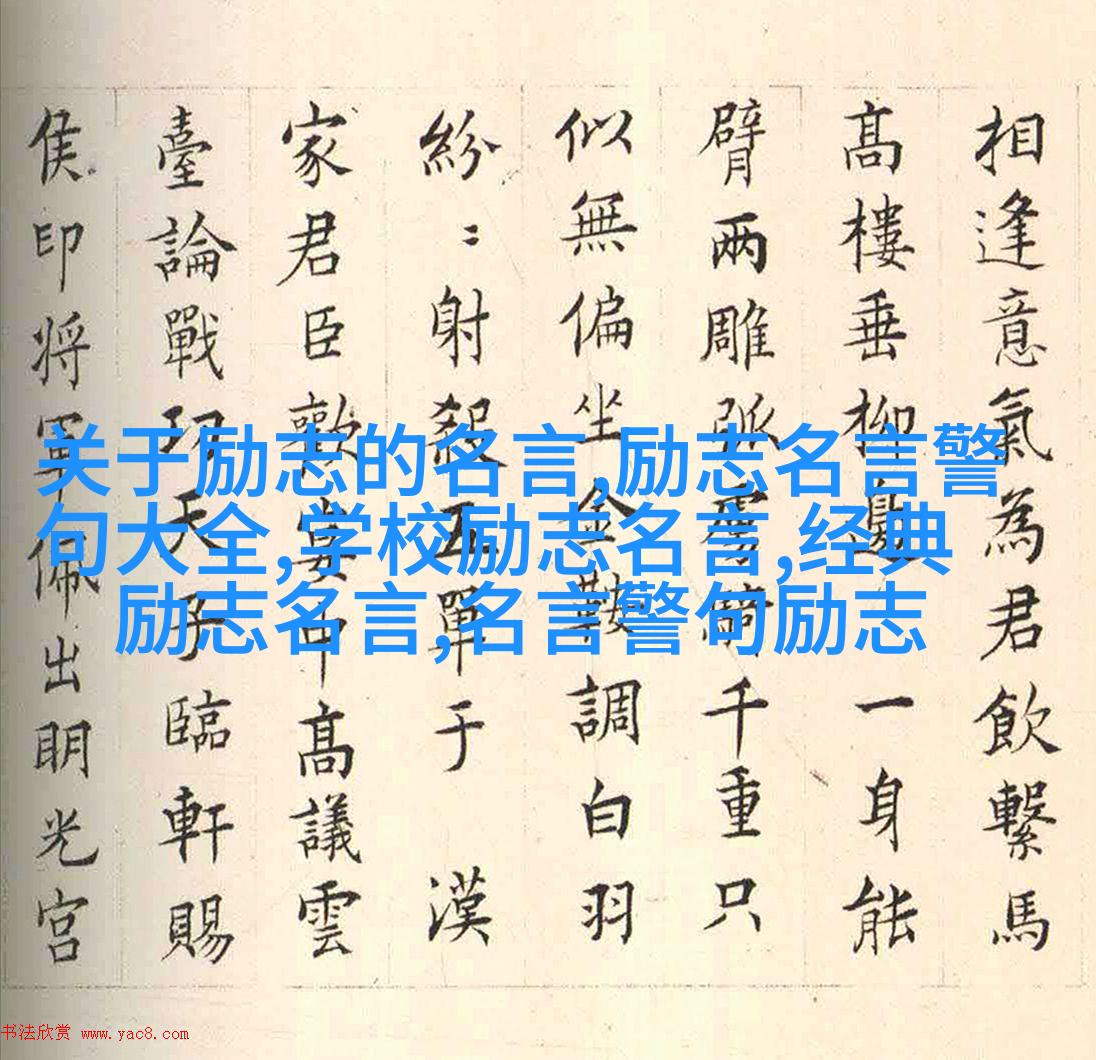 相逢意氣為君飲繫馬
高樓垂柳邊一身能
臂兩雕弧虜騎千重只
似無偏坐金鞍調白羽
紛〻射殺五單于 漢
家君臣歡宴高議雲
臺論戰功天子臨軒賜
侯印将軍佩出明光宮
关于励志的名言,励志名言警
句大全,学校励志名言,经典
励志名言,名言警句励志
书法欣赏 www.yac8.com